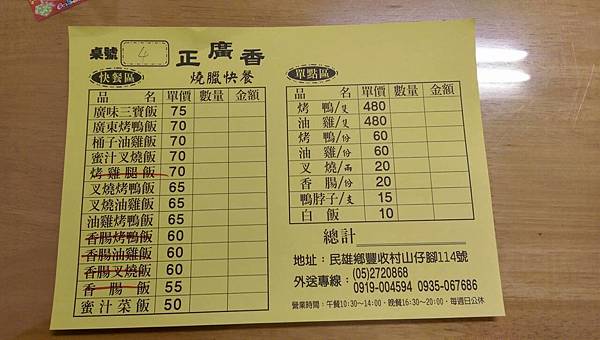 桌號 4 正廣香
燒臘快餐
快餐區
品名 單價 數量 金額
廣味三寶飯 75
廣東烤鴨飯 70
桶子油雞飯 70
蜜汁叉燒飯 70
烤雞腿飯 70
叉燒烤鴨飯 65
叉燒油雞飯 65
油雞烤鴨飯 65
香腸烤鴨飯 60
香腸油雞飯 60
香腸叉燒飯 60
香腸飯 55
蜜汁菜飯 50
單點區
品名 單價 數量 金額
烤鴨/隻 480
油雞/隻 480
烤鴨/份 60
油雞/份 60
叉燒/兩 20
香腸/份 20
鴨脖子/支 15
白飯 10
總計
地址：民雄鄉豐收村山仔腳114號
(05)2720868
外送專線：0919-004594 0935-067686
營業時間：午餐10:30～14:00，晚餐16:30～20:00，每週日公休